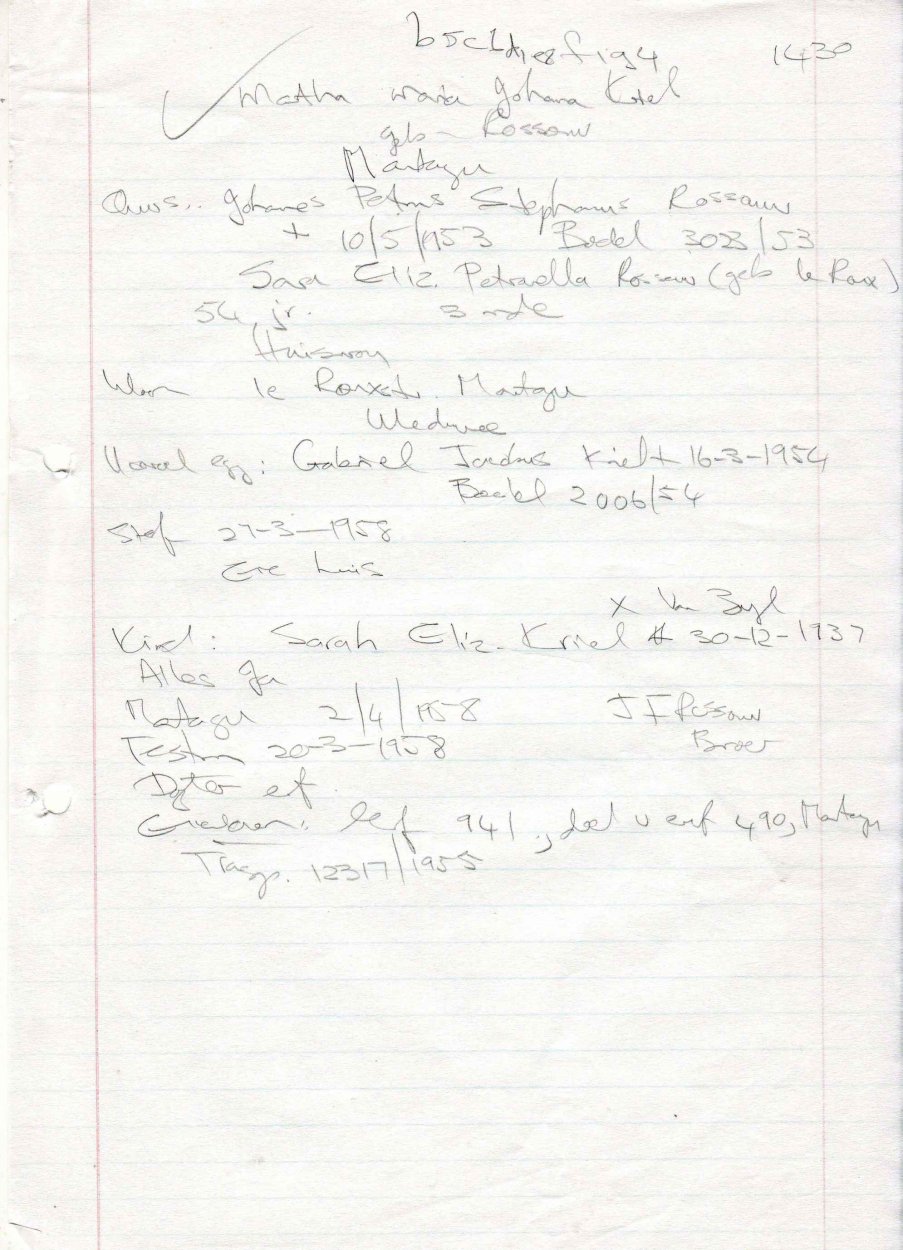 b5c1d1e8fig4 1430
Martha Maria Johana Kriel
geb Rossouw
Montagu
Ouers.. Johannes Petrus Stephanus Rossouw
+ 10/5/1953 Boedel 3023/53
Sara Eliz. Petronella Rossouw (geb le Roux)
54 jr. 3 mde
Huisvrou
Woon le Rouxstr. Montagu
Weduwee
Vooral egg: Gabriel Jordaus Kriel + 16-3-1954
Boedel 2006/54
Sterf 27-3-1958
Eie huis
x Van Zyl
Kind: Sarah Eliz. Kriel * 30-12-1937
Alles Ja
Montagu 2/4/1958 J F Rossouw
Testm 20-3-1958 Broer
Dogter erf
erf 941, deel v erf 490, Montagu
Trasp. 12317/1955